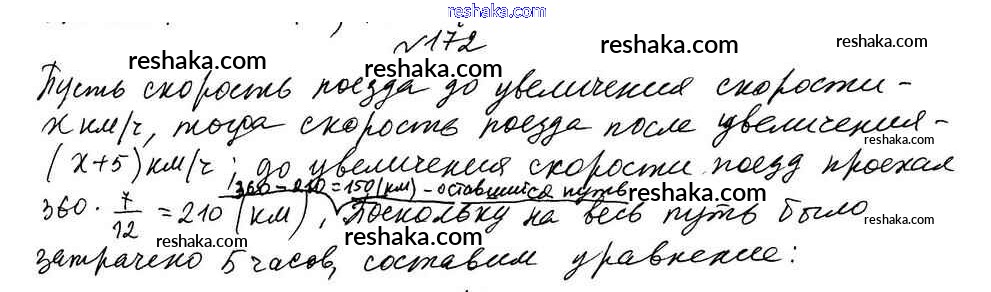 reshaka.com
№172
reshaka.com reshaka.com
reshaka.com
Пусть скорость поезда до увеличения скорости –
reshaka.com
x км/ч, тогда скорость поезда после увеличения –
reshaka.com reshaka.com
(x+5) км/ч; до увеличения скорости поезд проехал
360 – 210 = 150 (км) – оставшийся путь
360 · 7/12 = 210 (км), Поскольку на весь путь было
reshaka.com reshaka.com reshaka.com
затрачено 5 часов, составим уравнение:
reshaka.com